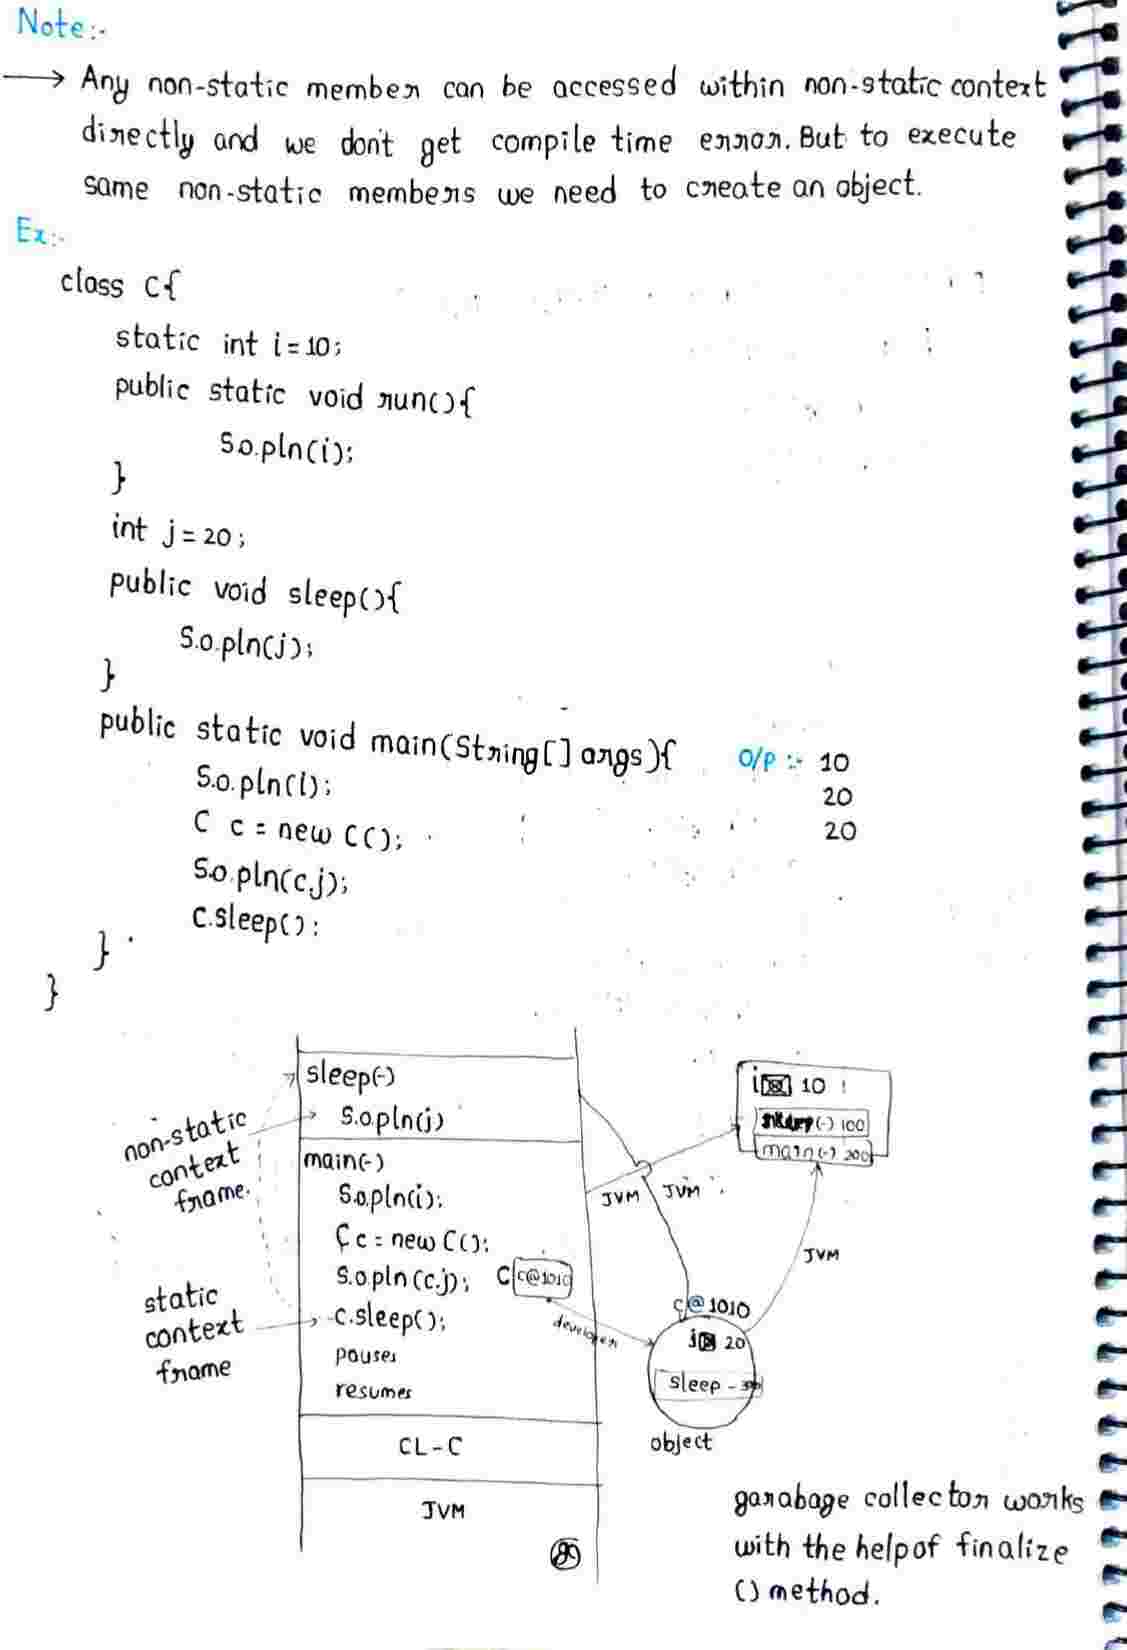 Note:-
→ Any non-static member can be accessed within non-static context
directly and we don't get compile time error. But to execute
same non-static members we need to create an object.
Ex:-
class C{
static int i = 10;
public static void run(){
S.o.pln(i);
}
int j = 20;
public void sleep(){
S.o.pln(j);
}
public static void main(String[] args){
S.o.pln(i);
C c = new C();
S.o.pln(c.j);
c.sleep();
}
}
O/P :- 10
20
20
sleep(-)
S.o.pln(j)
main(-)
S.o.pln(i);
C c = new C();
S.o.pln(c.j);
c.sleep();
pauses
resumes
CL-C
JVM
non-static
context
frame.
static
context
frame
C c@1010
developer
JVM
JVM
JVM
i 10
(-) 100
main(-) 200
c@1010
j 20
sleep -
object
garabage collector works
with the help of finalize
() method.